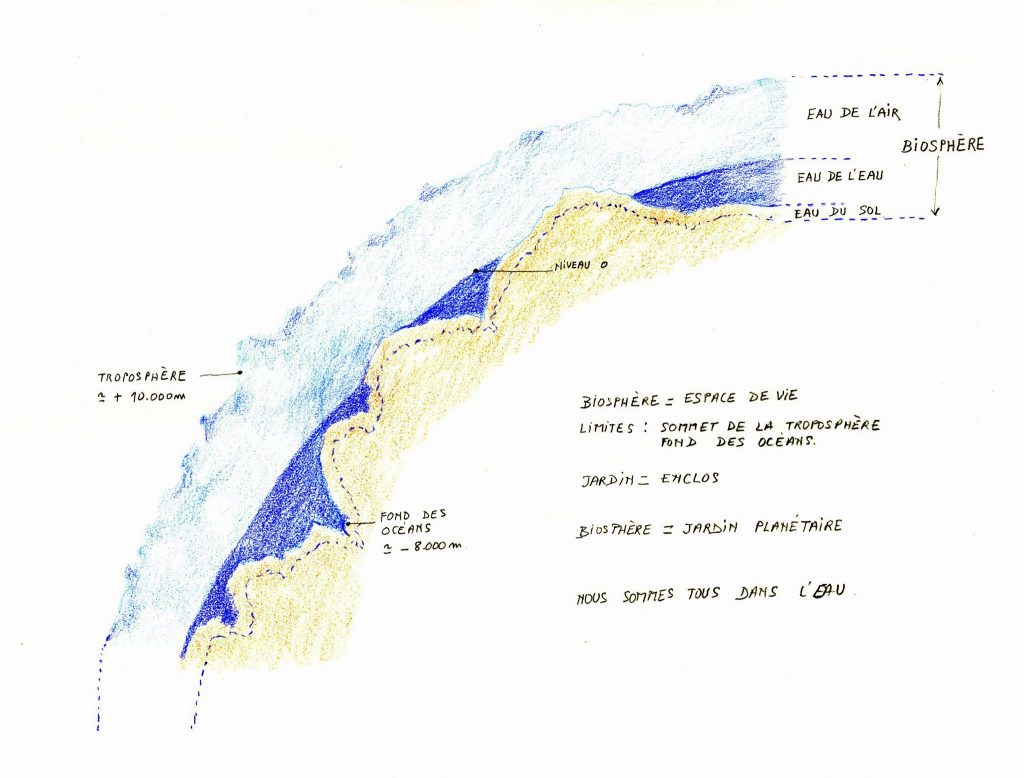 EAU DE L'AIR
BIOSPHÈRE
EAU DE L'EAU
EAU DU SOL
NIVEAU 0
TROPOSPHÈRE
≃ + 10.000m
FOND DES
OCÉANS
≃ - 8.000m.
BIOSPHÈRE = ESPACE DE VIE
LIMITES : SOMMET DE LA TROPOSPHÈRE
FOND DES OCÉANS.
JARDIN = ENCLOS
BIOSPHÈRE = JARDIN PLANÉTAIRE
NOUS SOMMES TOUS DANS L'EAU